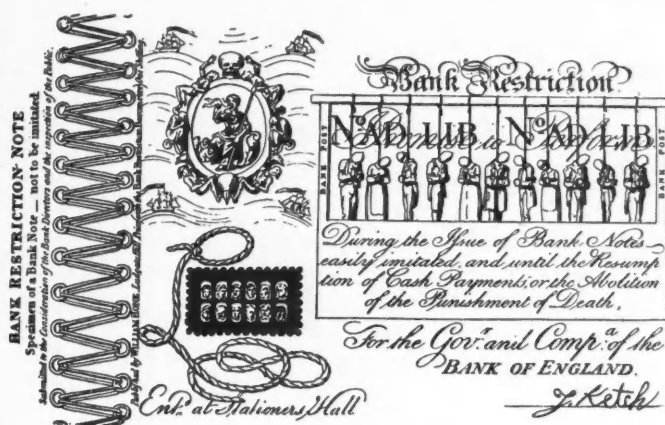 BANK RESTRICTION NOTE
Specimen of a Bank Note — not to be imitated.
Submitted to the Consideration of the Bank Directors and the inspection of the Public.
Bank Restriction
BANK POST
No. AD. LIB.
No. AD. LIB.
I Promise to Perform
BANK POST
During the Issue of Bank Notes
easily imitated, and until the Resump
tion of Cash Payments, or the Abolition
of the Punishment of Death,
For the Govr. and Compa. of the
BANK OF ENGLAND.
J. Ketch
Entd. at Stationers Hall